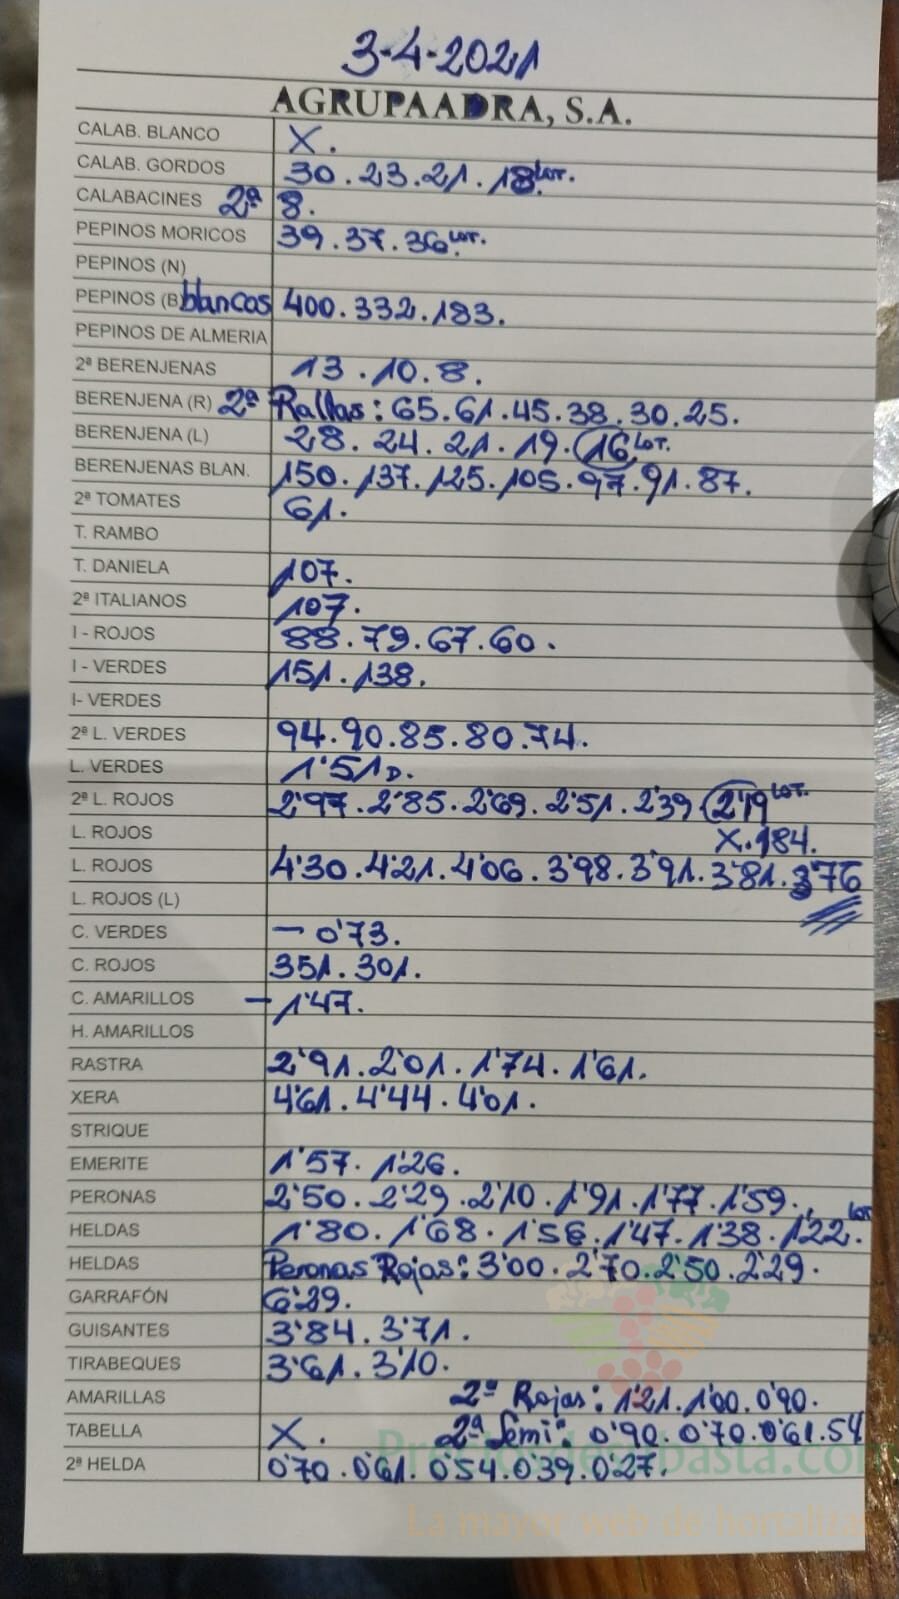 3-4-2021
AGRUPAADRA, S.A.
CALAB. BLANCO X.
CALAB. GORDOS 30.23.21.18 LOT.
CALABACINES 2ª 8.
PEPINOS MORICOS 39.37.36 LOT.
PEPINOS (N)
PEPINOS (B) blancos 400.332.183.
PEPINOS DE ALMERIA
2ª BERENJENAS 13.10.8.
BERENJENA (R) 2ª Rallas: 65.61.45.38.30.25.
BERENJENA (L) 28.24.21.19.16 LOT.
BERENJENAS BLAN. 150.137.125.105.97.91.87.
2ª TOMATES 61.
T. RAMBO
T. DANIELA 107.
2ª ITALIANOS 107.
I - ROJOS 88.79.67.60.
I - VERDES 151.138.
I- VERDES
2ª L. VERDES 94.90.85.80.74.
L. VERDES 1'51 D.
2ª L. ROJOS 2'97.2'85.2'69.2'51.2'39 2'19 LOT.
L. ROJOS X.184.
L. ROJOS 4'30.4'21.4'06.3'98.3'91.3'81.3'76
L. ROJOS (L)
C. VERDES - 0'73.
C. ROJOS 351.301.
C. AMARILLOS - 1'47.
H. AMARILLOS
RASTRA 2'91.2'01.1'74.1'61.
XERA 4'61.4'44.4'01.
STRIQUE
EMERITE 1'57.1'26.
PERONAS 2'50.2'29.2'10.1'91.1'77.1'59.
HELDAS 1'80.1'68.1'56.1'47.1'38.1'22 LOT.
HELDAS Peronas Rojas: 3'00.2'70.2'50.2'29.
GARRAFÓN 6'29.
GUISANTES 3'84.3'71.
TIRABEQUES 3'61.3'10.
AMARILLAS 2ª Rojas: 1'21.1'00.0'90.
TABELLA X. 2ª Semi: 0'90.0'70.0'61.54
2ª HELDA 0'70.0'61.0'54.0'39.0'27.
Preciosdesubasta.com
La mayor web de hortalizas